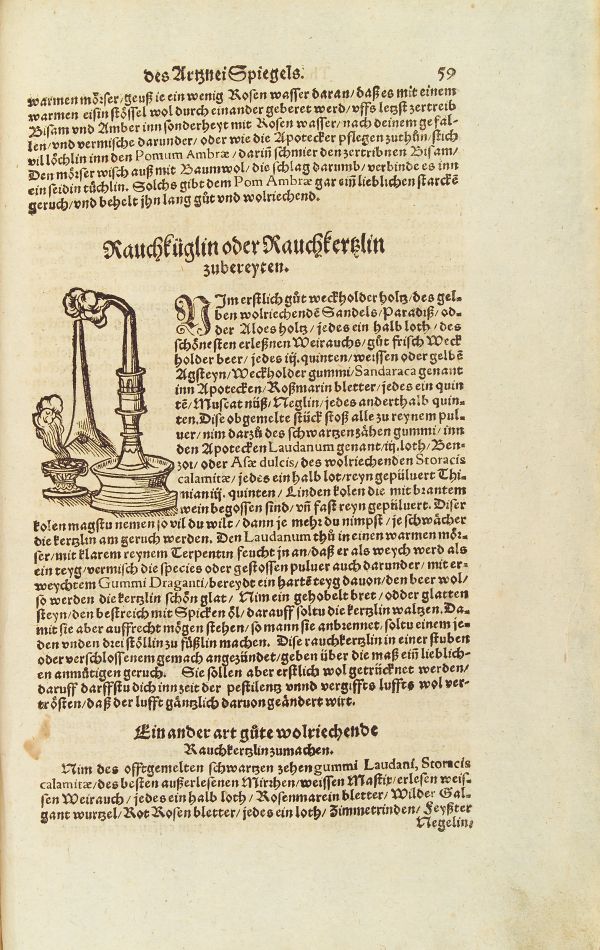 des Artznei Spiegels. 59
warmen mörser/geuß ie ein wenig Rosen wasser daran/daß es mit einem
warmen eisin stössel wol durch einander geberet werd/vffs letzst zertreib
Bisam vnd Amber inn sonderheyt mit Rosen wasser/nach deinem gefal-
len/vnd vermische darunder/oder wie die Apotecker pflegen zuthůn/stich
vil löchlin inn den Pomum Ambræ/darin̄ schmier den zertribnen Bisam/
Den mörser wisch auß mit Baumwol/die schlag darumb/verbinde es inn
ein seidin tüchlin. Solchs gibt dem Pom Ambræ gar ein̄ lieblichen starckē
geruch/vnd behelt jhn lang gůt vnd wolriechend.
Rauchküglin oder Rauchkertzlin
zubereyten.
NIm erstlich gůt weckholder holtz/des gel-
ben wolriechendē Sandels/Paradiß/od-
der Aloes holtz/jedes ein halb loth/des
schönesten erleßnen Weirauchs/gůt frisch Weck
holder beer/jedes iij. quinten/weissen oder gelbē
Agsteyn/Weckholder gummi/Sandaraca genant
inn Apotecken/Roßmarin bletter/jedes ein quin
tē/Muscat nüß/Neglin/jedes anderthalb quin-
ten. Dise obgemelte stück stoß alle zu reynem pul-
uer/nim darzů des schwartzen zähen gummi/inn
den Apotecken Laudanum genant/iij. loth/Ben-
zoi/oder Asæ dulcis/des wolriechenden Storacis
calamitæ/jedes ein halb lot/reyn gepüluert Thi-
mian iij. quinten/Linden kolen die mit brantem
wein begossen sind/vn̄ fast reyn gepüluert. Diser
kolen magstu nemen so vil du wilt/dann je mehr du nimpst/je schwächer
die kertzlin am geruch werden. Den Laudanum thů in einen warmen mör-
ser/mit klarem reynem Terpentin feucht in an/daß er als weych werd als
ein teyg/vermisch die species oder gestossen puluer auch darunder/mit er-
weychtem Gummi Draganti/bereydt ein hartē teyg dauon/den beer wol/
so werden die kertzlin schön glat/Nim ein gehobelt bret/odder glatten
steyn/den bestreich mit Spicken öl/darauff soltu die kertzlin waltzen. Da-
mit sie aber auffrecht mögen stehen/so mann sie anbrennet/soltu einem je-
den vnden drei stöllin zu füßlin machen. Dise rauchkertzlin in einer stuben
oder verschlossenem gemach angezündet/geben über die maß ein̄ lieblich-
en anmůtigen geruch. Sie sollen aber erstlich wol getrücknet werden/
daruff darffstu dich inn zeit der pestilentz vnnd vergiffts luffts wol ver-
trösten/daß der lufft gäntzlich daruon geändert wirt.
Ein ander art gůte wolriechende
Rauchkertzlin zumachen.
Nim des offtgemelten schwartzen zehen gummi Laudani, Storacis
calamitæ/des besten außerlesenen Mirrhen/weissen Mastix/erlesen weis-
sen Weirauch/jedes ein halb loth/Rosenmarein bletter/Wilder Gal-
gant wurtzel/Rot Rosen bletter/jedes ein loth/Zimmetrinden/Feyßter
Negelin/